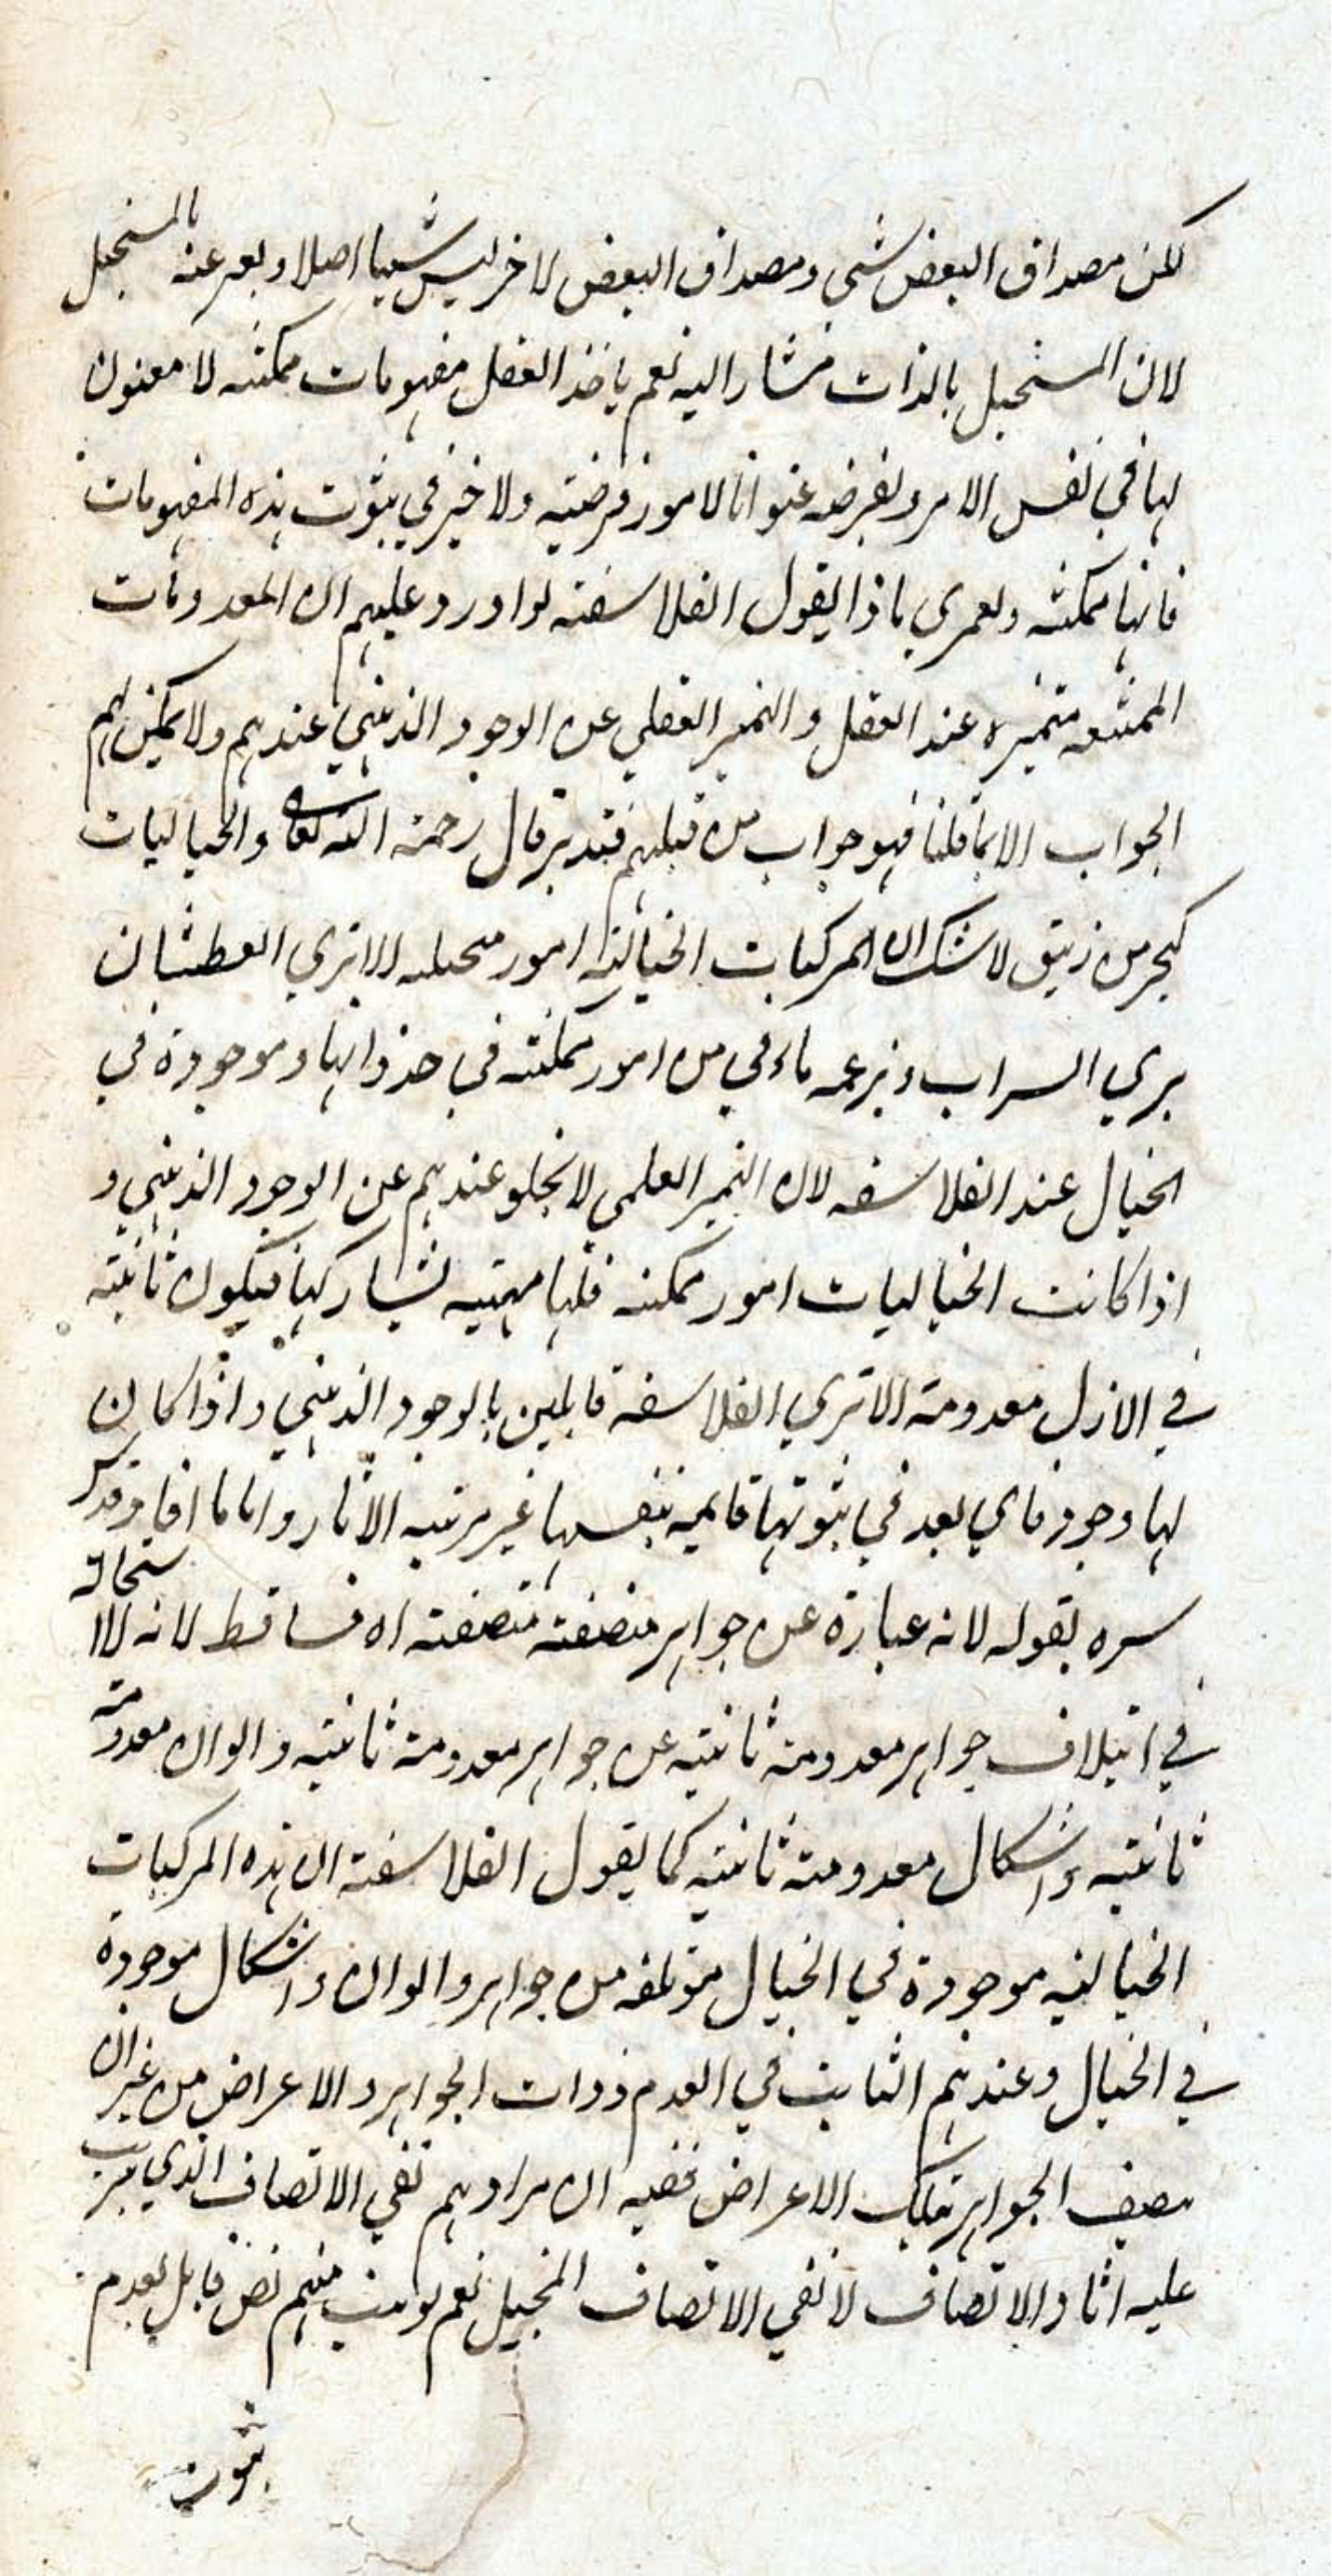 لكن مصداق البعض شي ومصداق البعض لاخر ليس شيئا اصلا ويعبر عنه بالمستحيل
لان المستحيل بالذات مشار اليه نعم ياخذ العقل مفهومات ممكنة لا معنون
لها في نفس الامر ويفرضه عنوانا لامور فرضية ولا خير في ثبوت هذه المفهومات
فانها ممكنة ولعمري ماذا يقول الفلاسفة لو اورد عليهم ان المعدومات
الممتنعه متميزه عند العقل والتميز العقلي عن الوجود الذهني عندهم ولا يمكن لهم
الجواب الا بما قلنا فهو جواب من قبلهم فتدبر قال رحمة الله تعالى والخياليات
كبحر من زيبق لا شك ان المركبات الخيالية امور مخيله الا تري العطشان
يري السراب ويزعمه ماء في من امور ممكنة في حد ذواتها وموجودة في
الخيال عند الفلاسفه لان التميز العلمي لا يخلو عندهم عن الوجود الذهني و
اذا كانت الخياليات امور ممكنه فلها مهية تشاركها فيكون ثابتة
في الازل معدومة الا تري الفلاسفة قايلين بالوجود الذهني واذا كان
لها وجود فاي بعد في ثبوتها قايمة بنفسها غير مرتبه الاثار واما ما افاد قدس
سره بقوله لانه عبارة عن جواهر متصفة متصفة اه فساقط لانه لا استحالة
في ايتلاف جواهر معدومة ثابتيه عن جواهر معدومة ثابتيه والوان معدومة
ثابتيه واشكال معدومة ثابتيه كما يقول الفلاسفة ان هذه المركبات
الخياليه موجودة في الخيال مؤتلفه من جواهر والوان واشكال موجودة
في الخيال وعندهم الثابت في العدم ذوات الجواهر والاعراض من غير ان
يصف الجواهر بتلك الاعراض ففيه ان مرادهم نفي الاتصاف الذي يترتب
عليه اثار الاتصاف لا نفي الاتصاف المخيل نعم لو ثبت منهم نص قايل بعدم
ثبوت